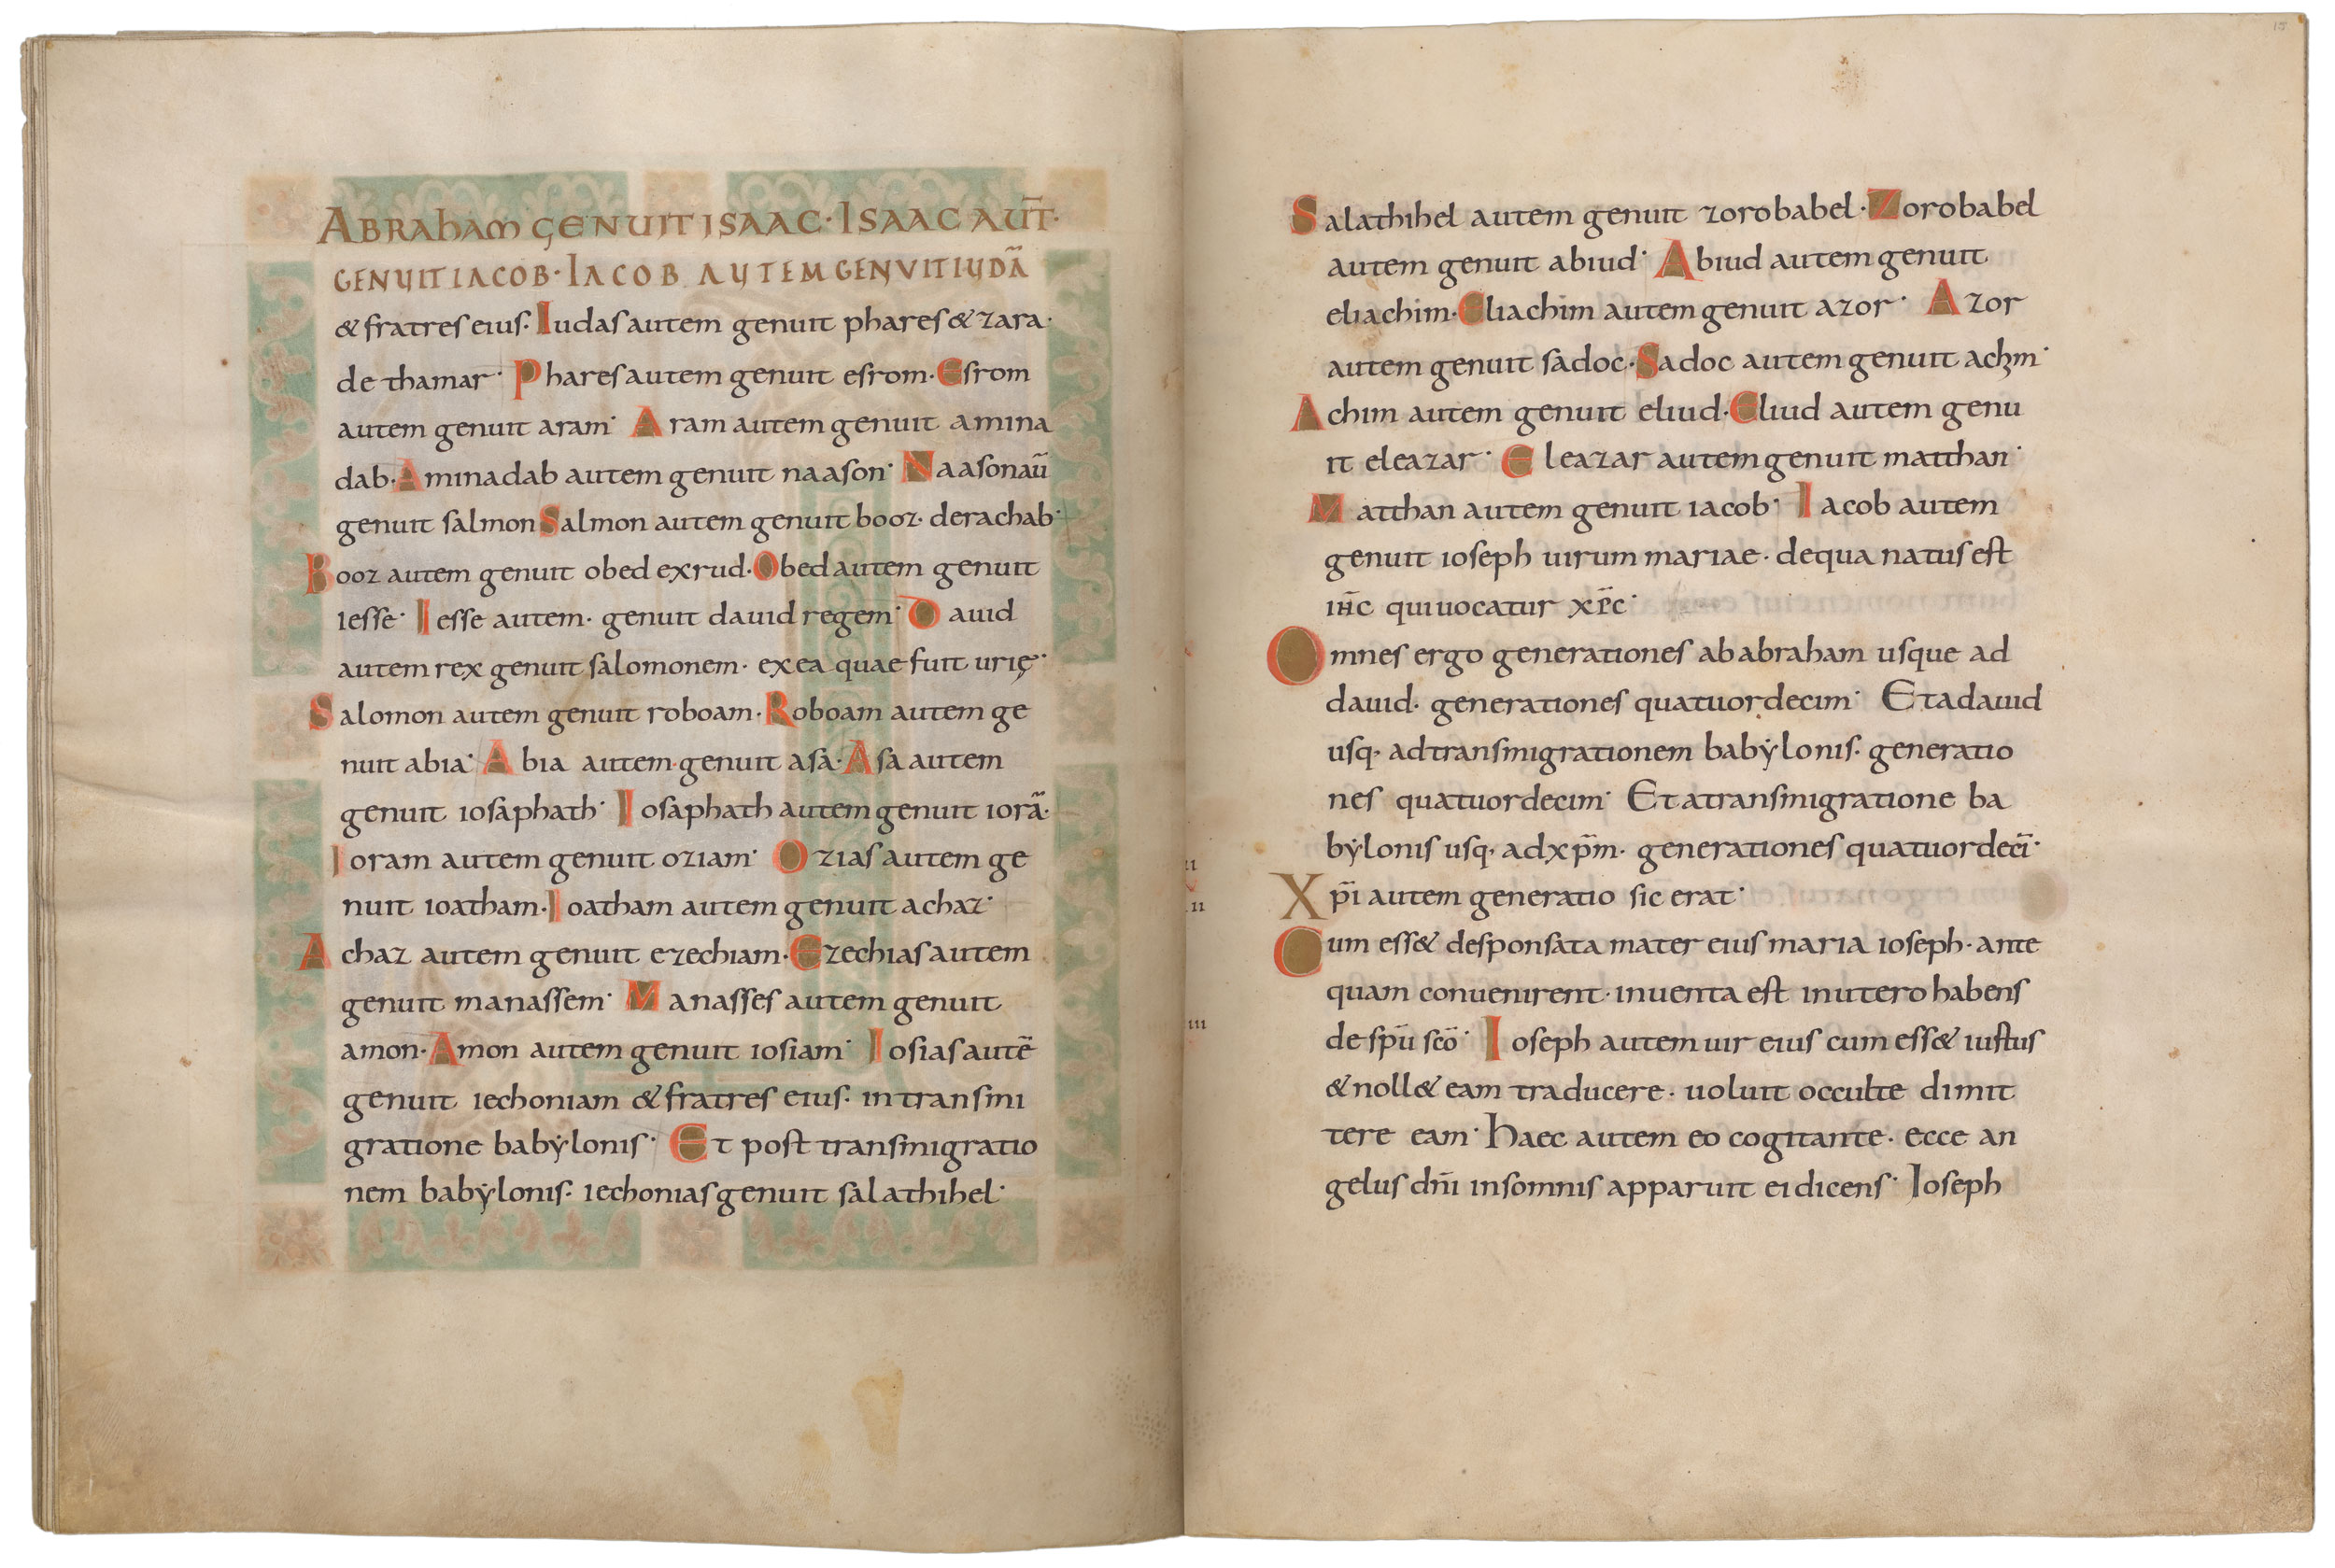 ABRAHAM GENUIT ISAAC· ISAAC AUT̄·
GENUIT IACOB· IACOB AUTEM GENUIT IUDĀ
& fratres eius· Iudas autem genuit phares & zara·
de thamar· Phares autem genuit esrom· Esrom
autem genuit aram· Aram autem genuit amina
dab· Aminadab autem genuit naason· Naason aū
genuit salmon Salmon autem genuit booz· de rachab·
Booz autem genuit obed ex rud· Obed autem genuit
iesse· Iesse autem· genuit dauid regem· Dauid
autem rex genuit salomonem· ex ea quae fuit urię·
Salomon autem genuit roboam· Roboam autem ge
nuit abia· Abia autem· genuit asa· Asa autem
genuit iosaphath· Iosaphath autem genuit iorā·
Ioram autem genuit oziam· Ozias autem ge
nuit ioatham· Ioatham autem genuit achaz·
Achaz autem genuit ezechiam· Ezechias autem
genuit manassem· Manasses autem genuit
amon· Amon autem genuit iosiam· Iosias autē
genuit iechoniam & fratres eius· in transmi
gratione babẏlonis· Et post transmigratio
nem babẏlonis· iechonias genuit salathihel·
Salathihel autem genuit zorobabel· Zorobabel
autem genuit abiud· Abiud autem genuit
eliachim· Eliachim autem genuit azor· Azor
autem genuit sadoc· Sadoc autem genuit achim·
Achim autem genuit eliud· Eliud autem genu
it eleazar· Eleazar autem genuit matthan·
Matthan autem genuit iacob· Iacob autem
genuit ioseph uirum mariae· de qua natus est
ih̄c qui uocatur xp̄c·
Omnes ergo generationes ab abraham usque ad
dauid· generationes quatuordecim· Et a dauid
usq· ad transmigrationem babẏlonis· generatio
nes quatuordecim· Et a transmigratione ba
bẏlonis usq· ad xp̄m· generationes quatuordecī·
Xp̄i autem generatio sic erat·
Cum ess& desponsata mater eius maria ioseph· ante
quam conuenirent· inuenta est in utero habens
de sp̄u sc̄o· Ioseph autem uir eius cum ess& iustus
& noll& eam traducere· uoluit occulte dimit
tere eam· Haec autem eo cogitante· ecce an
gelus dn̄i in somnis apparuit ei dicens· Ioseph